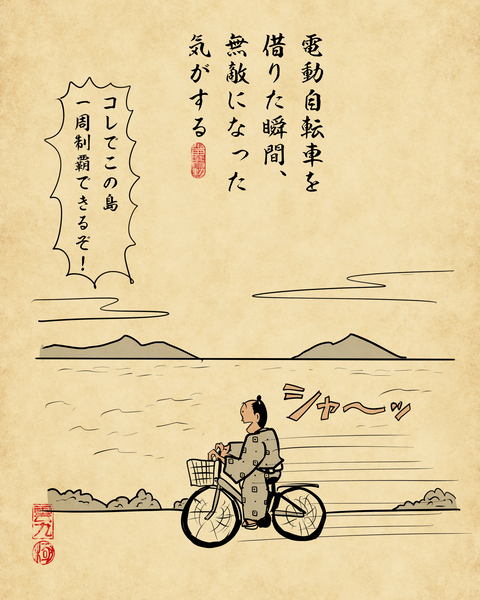 電動自転車を
借りた瞬間、
無敵になった
気がする
コレでこの島
一周制覇できるぞ!
シャ〜ッ